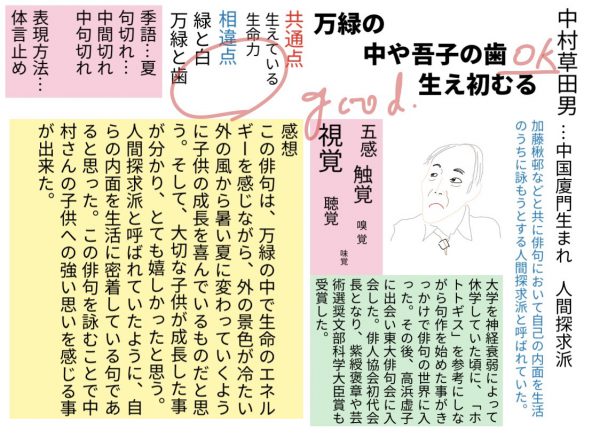 中村草田男…中国廈門生まれ　人間探求派
加藤楸邨などと共に俳句において自己の内面を生活
のうちに詠もうとする人間探求派と呼ばれていた。
万緑の
中や吾子の歯
生え初むる
OK
good.
共通点
生えている
生命力
相違点
緑と白
万緑と歯
季語…夏
句切れ…
中間切れ
中句切れ
表現方法…
体言止め
大学を神経衰弱によって
休学していた頃に、「ホ
トトギス」を参考にしな
がら句作を始めた事がき
っかけで俳句の世界に入
った。その後、高浜虚子
に出会い東大俳句会に入
会した。俳人協会初代会
長となり、紫綬褒章や芸
術選奨文部科学大臣賞も
受賞した。
五感
触覚
嗅覚
味覚
視覚
聴覚
感想
この俳句は、万緑の中で生命のエネル
ギーを感じながら、外の景色が冷たい
外の風から暑い夏に変わっていくよう
に子供の成長を喜んでいるものだと思
う。そして、大切な子供が成長した事
が分かり、とても嬉しかったと思う。
人間探求派と呼ばれていたように、自
らの内面を生活に密着している句であ
ると思った。この俳句を詠むことで中
村さんの子供への強い思いを感じる事
が出来た。